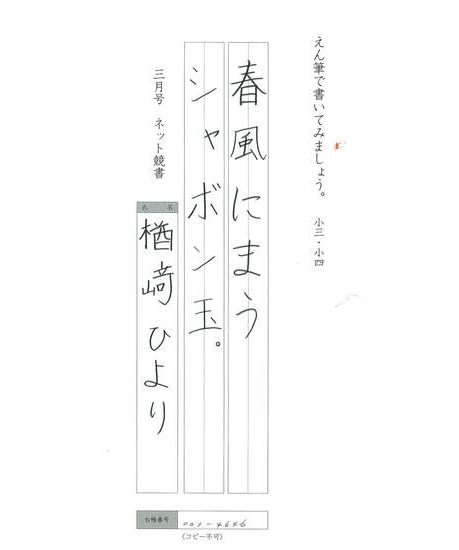 えん筆で書いてみましょう。 小三・小四
春風にまう
シャボン玉。
三月号 ネット競書
氏名
楢﨑 ひより
台帳番号
001-4646
(コピー不可)